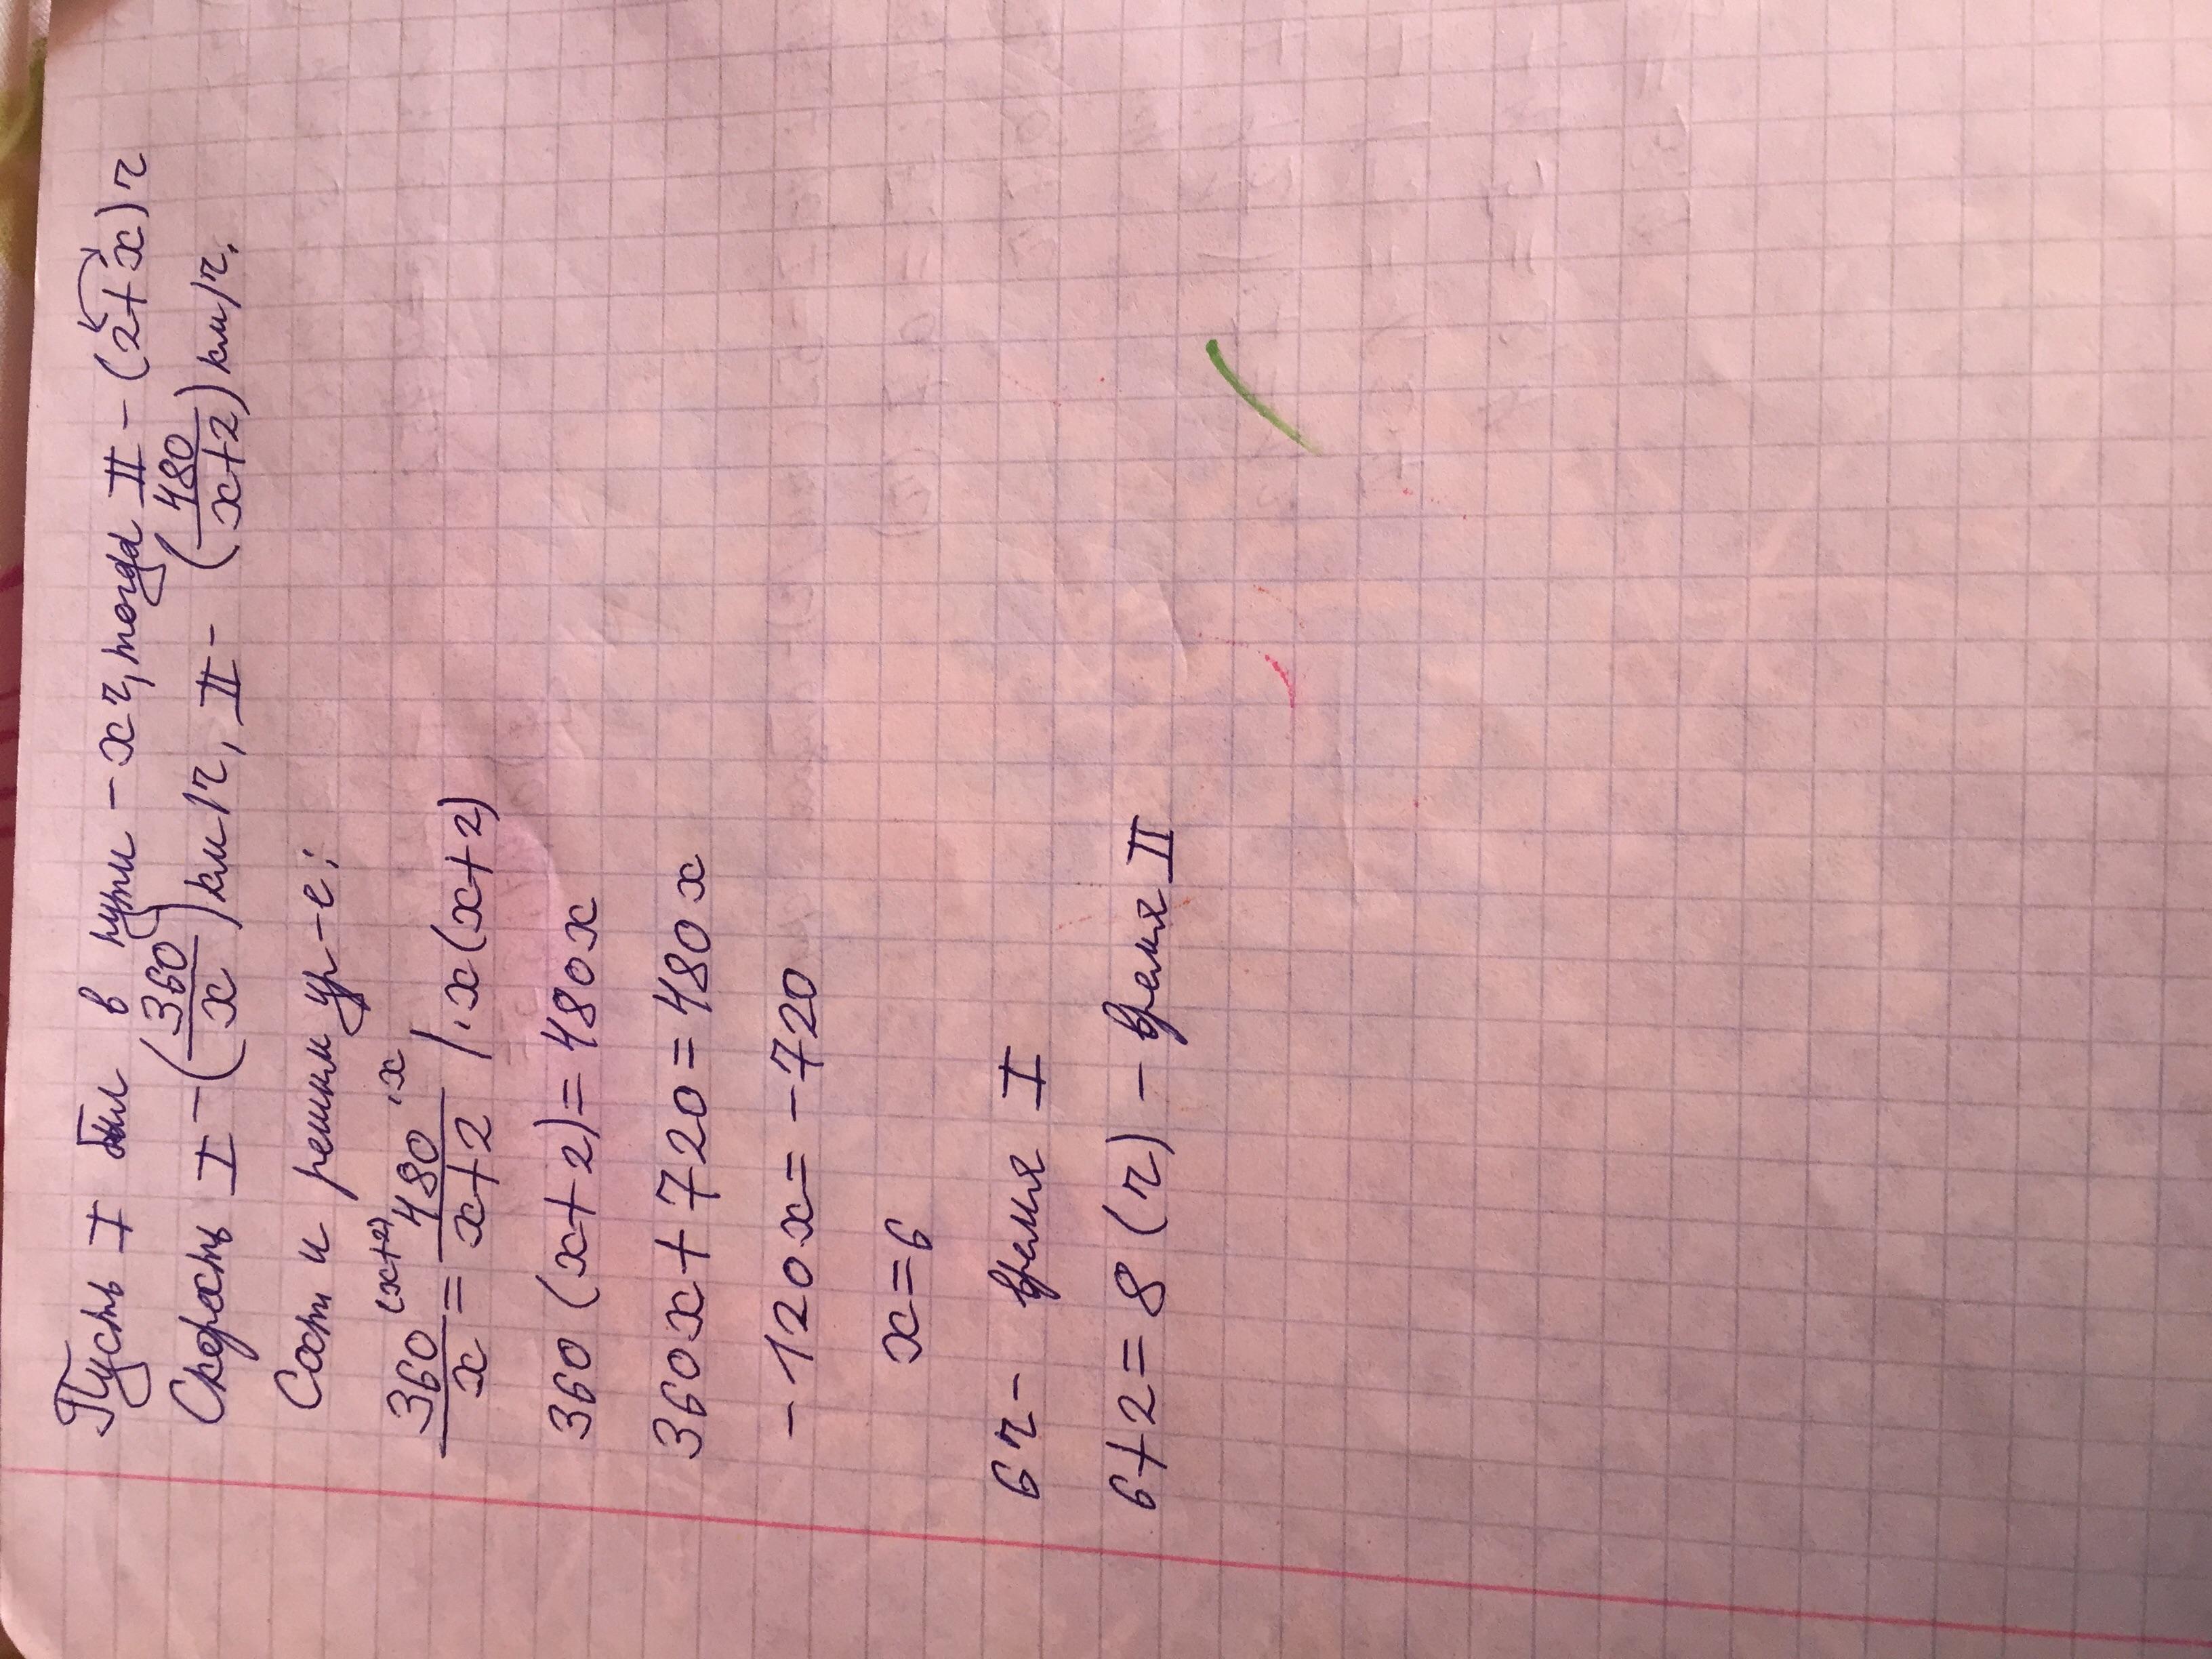 Пусть I был в пути - x ч, тогда II - (2+x) ч
Скорость I - (360/x) км/ч, II - (480/x+2) км/ч.
Сост и решим ур-е:
360/x (x+2) = 480/x+2 ·x | ·x(x+2)
360(x+2)=480x
360x+720=480x
-120x=-720
x=6
6 ч - время I
6+2=8 (ч) - время II